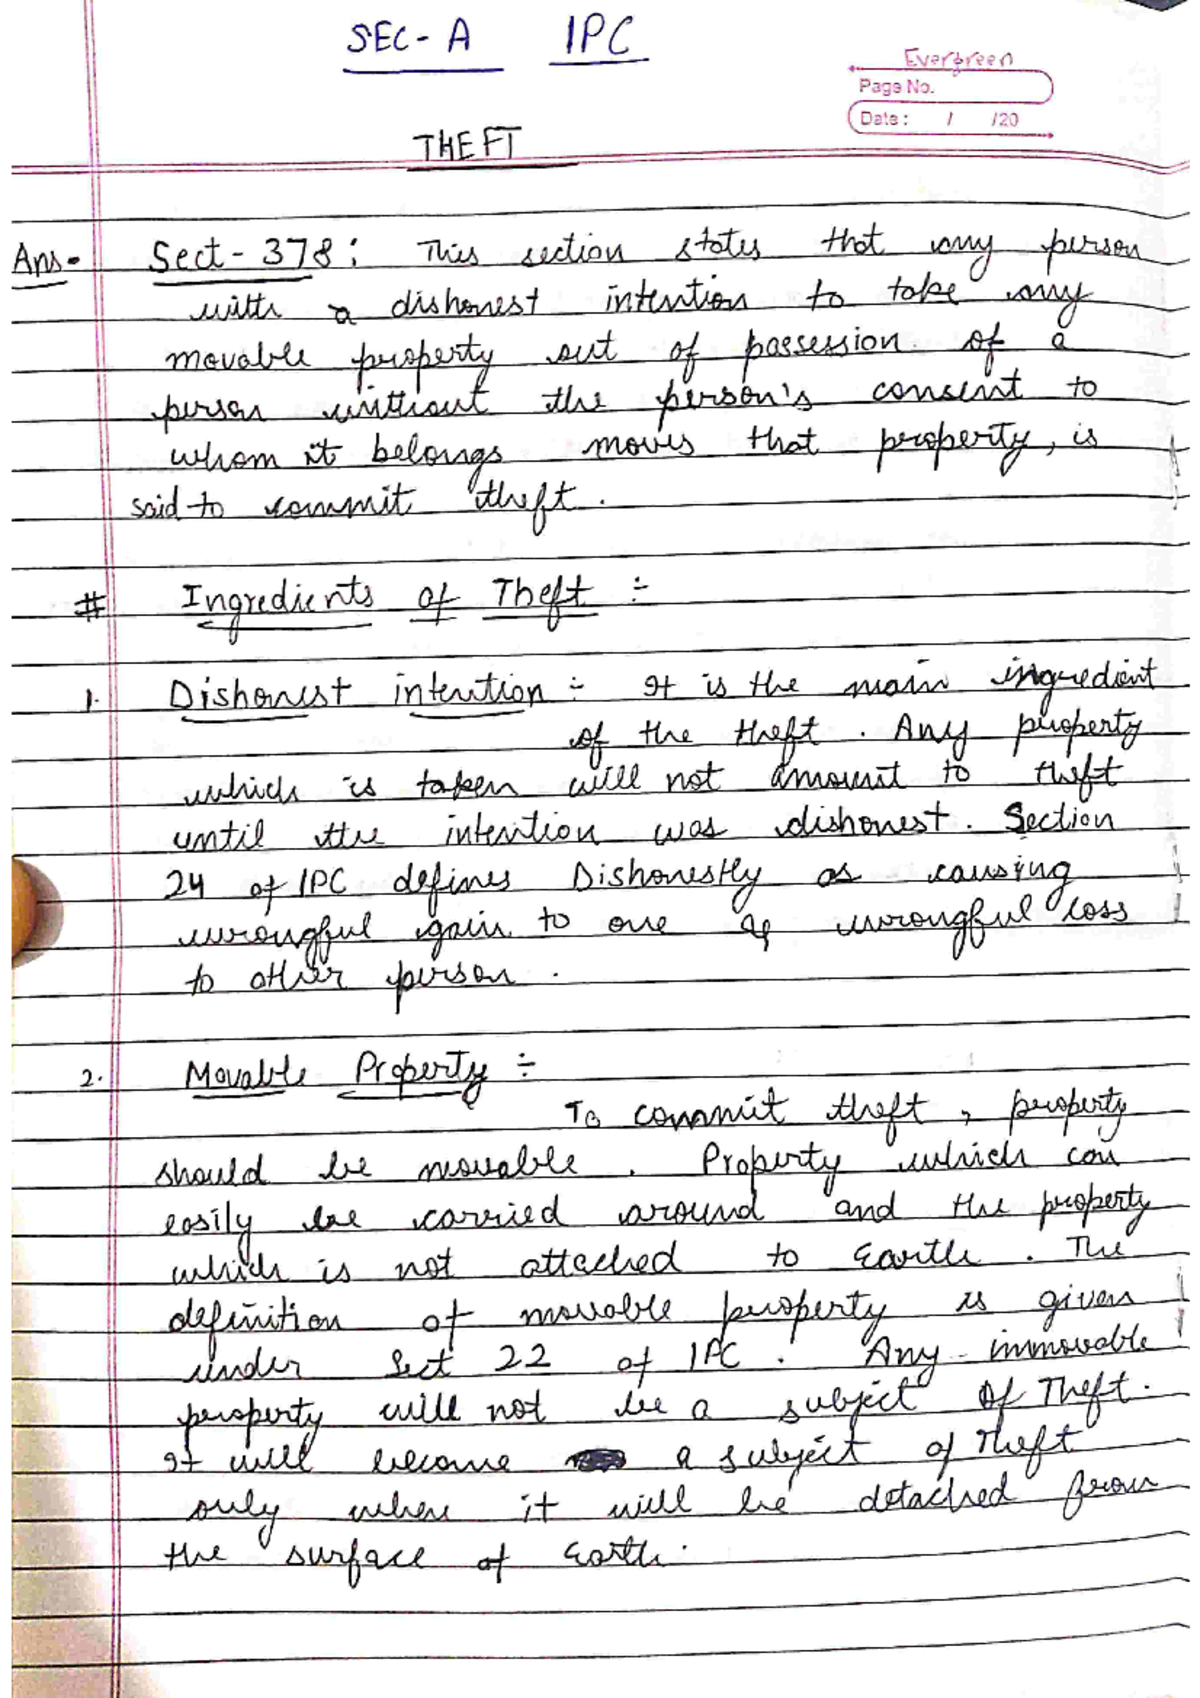 SEC-A IPC
Evergreen
Page No.
Date : / /20
THEFT
Ans- Sect-378: This section states that any person
with a dishonest intention to take any
movable property out of possession of a
person without the person's consent to
whom it belongs moves that property, is
said to commit theft.
# Ingredients of Theft :-
1. Dishonest intention :- It is the main ingredient
of the theft. Any property
which is taken will not amount to theft
until the intention was dishonest. Section
24 of IPC defines Dishonestly as causing
wrongful gain to one & wrongful loss
to other person.
2. Movable Property :-
To commit theft, property
should be movable. Property which can
easily be carried around and the property
which is not attached to Earth. The
definition of movable property is given
under Sect 22 of IPC. Any immovable
property will not be a subject of Theft.
It will become a subject of Theft
only when it will be detached from
the surface of Earth.